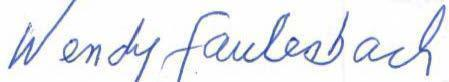 Wendy Faulesbach